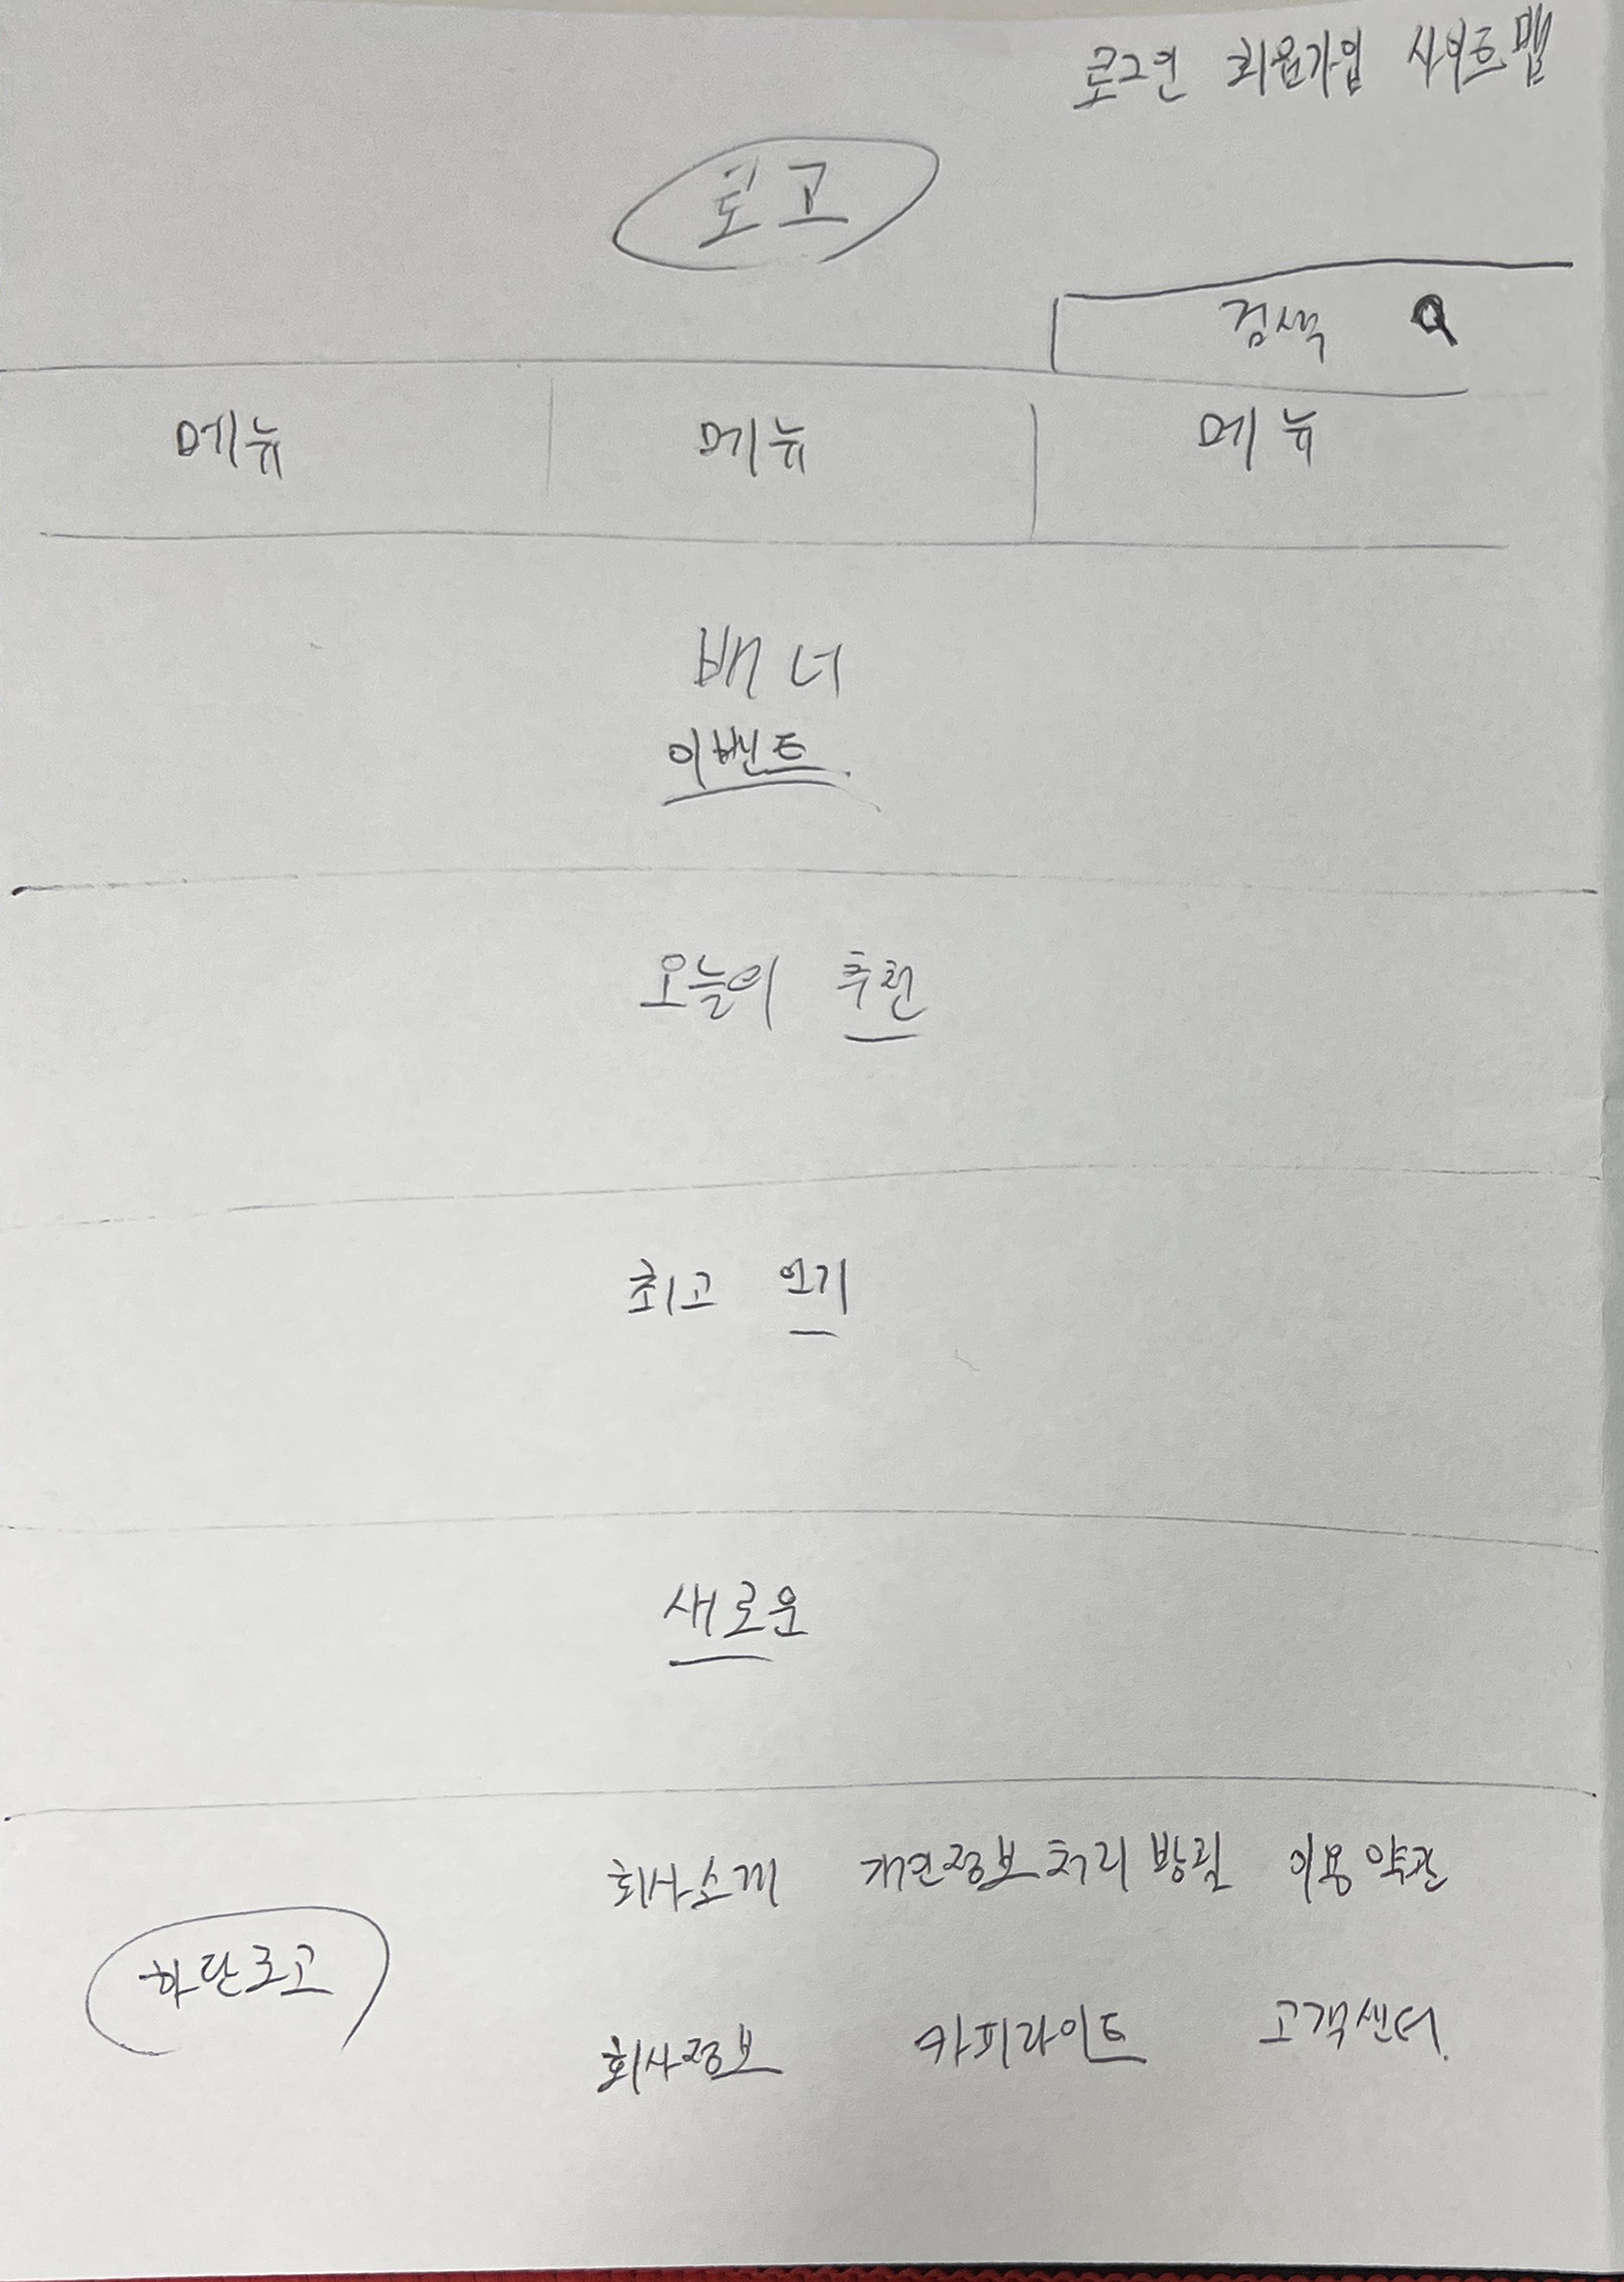 로그인 회원가입 사이트맵
로고
검색
메뉴 메뉴 메뉴
배너
이벤트
오늘의 추천
최고 인기
새로운
회사소개 개인정보처리방침 이용약관
하단로고
회사정보 카피라이트 고객센터